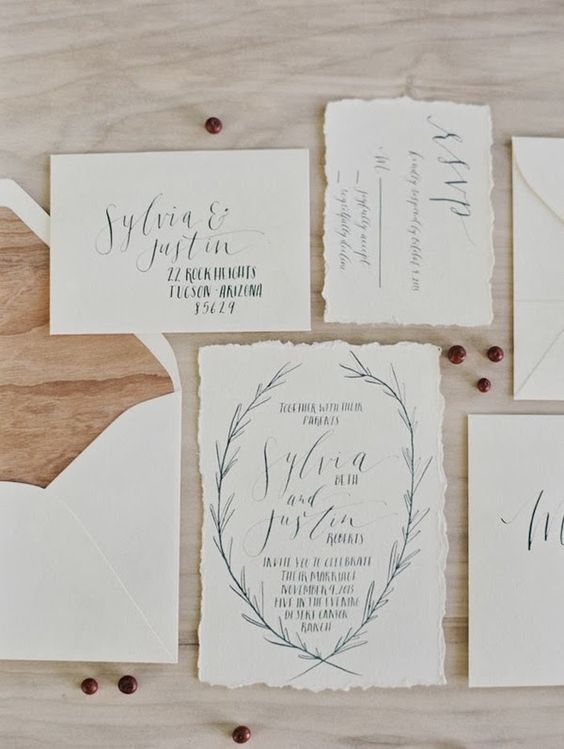 Sylvia &
Justin
22 ROCK HEIGHTS
TUCSON - ARIZONA
85629
rsvp
kindly respond by
M
joyfully accept
regretfully decline
TOGETHER WITH THEIR
PARENTS
Sylvia
BETH
and
Justin
ROBERTS
INVITE YOU TO CELEBRATE
THEIR MARRIAGE
NOVEMBER 9, 2013
FIVE IN THE EVENING
DESERT CANYON
RANCH